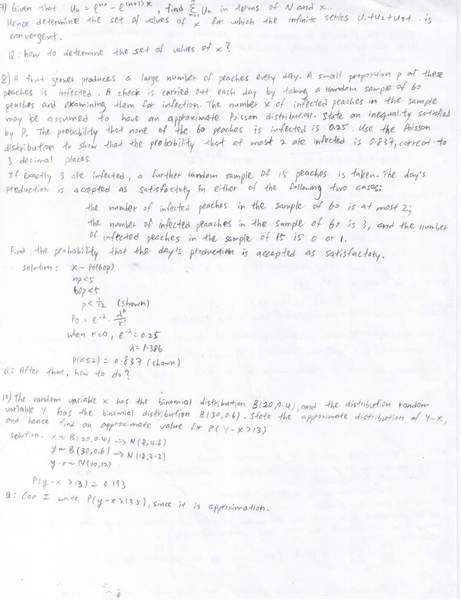 7) Given that Un = e^nx - e^(n+1)x, find Σ Un in terms of N and x.
Hence determine the set of values of x for which the infinite series U1+U2+U3+... is
convergent.
Q: how to determine the set of values of x?
8) A fruit grower produces a large number of peaches every day. A small proportion p of these
peaches is infected. A check is carried out each day by taking a random sample of 60
peaches and examining them for infection. The number x of infected peaches in the sample
may be assumed to have an approximate Poisson distribution. State an inequality satisfied
by P. The probability that none of the 60 peaches is infected is 0.25. Use the Poisson
distribution to show that the probability that at most 2 are infected is 0.837, correct to
3 decimal places.
If exactly 3 are infected, a further random sample of 15 peaches is taken. The day's
production is accepted as satisfactory in either of the following two cases:
the number of infected peaches in the sample of 60 is at most 2;
the number of infected peaches in the sample of 60 is 3, and the number
of infected peaches in the sample of 15 is 0 or 1.
Find the probability that the day's production is accepted as satisfactory.
solution: x ~ Po(60p)
np<5
60p<5
p < 1/12 (shown)
Po = e^-λ . λ^r/r!
when r=0, e^-λ = 0.25
λ = 1.386
P(x≤2) = 0.837 (shown)
Q: After that, how to do?
10) The random variable x has the binomial distribution B(20,0.4), and the distribution random
variable Y has the binomial distribution B(30,0.6). State the approximate distribution of Y-x,
and hence find an approximate value for P(Y-x>13)
solution: x ~ B(20,0.4) => N(8,4.8)
y ~ B(30,0.6) => N(18,7.2)
y-x ~ N(10,12)
P(y-x >13) = 0.193
Q: Can I write P(y-x >13.5), since it is approximation.